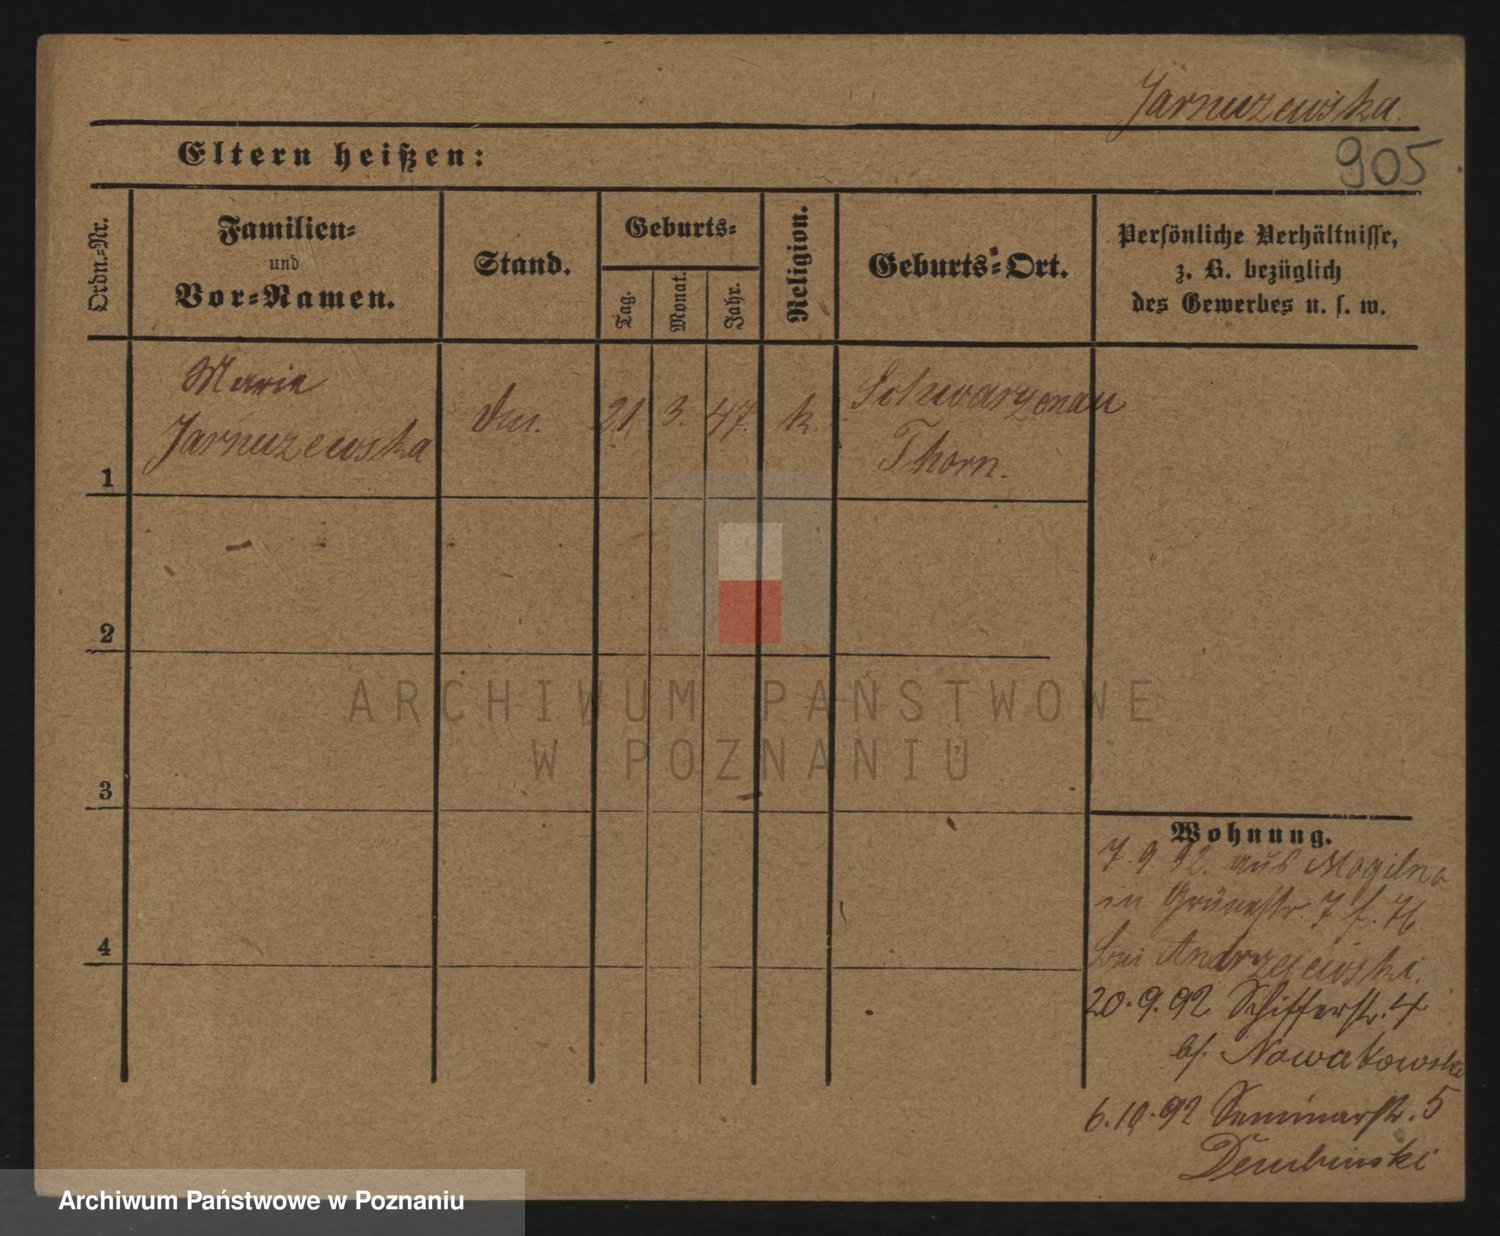 Jarnuzewska.
905
Eltern heißen:
Ordn.-Nr.
Familien-
und
Vor-Namen.
Stand.
Geburts-
Tag.
Monat.
Jahr.
Religion.
Geburts-Ort.
Persönliche Verhältnisse,
z. B. bezüglich
des Gewerbes u. s. w.
1
Marie
Jarnuzewska
21 3. 47. k.
Schwarzenau
Thorn.
2
3
4
Wohnung.
7.9 92. aus Mogilno
in Grünestr. 7
bei Andrzejewski.
20.9.92 Schifferstr. 4
bei Nowakowska
6.10.92 Seminarstr. 5
Dembinski
ARCHIWUM PAŃSTWOWE
W POZNANIU
Archiwum Państwowe w Poznaniu